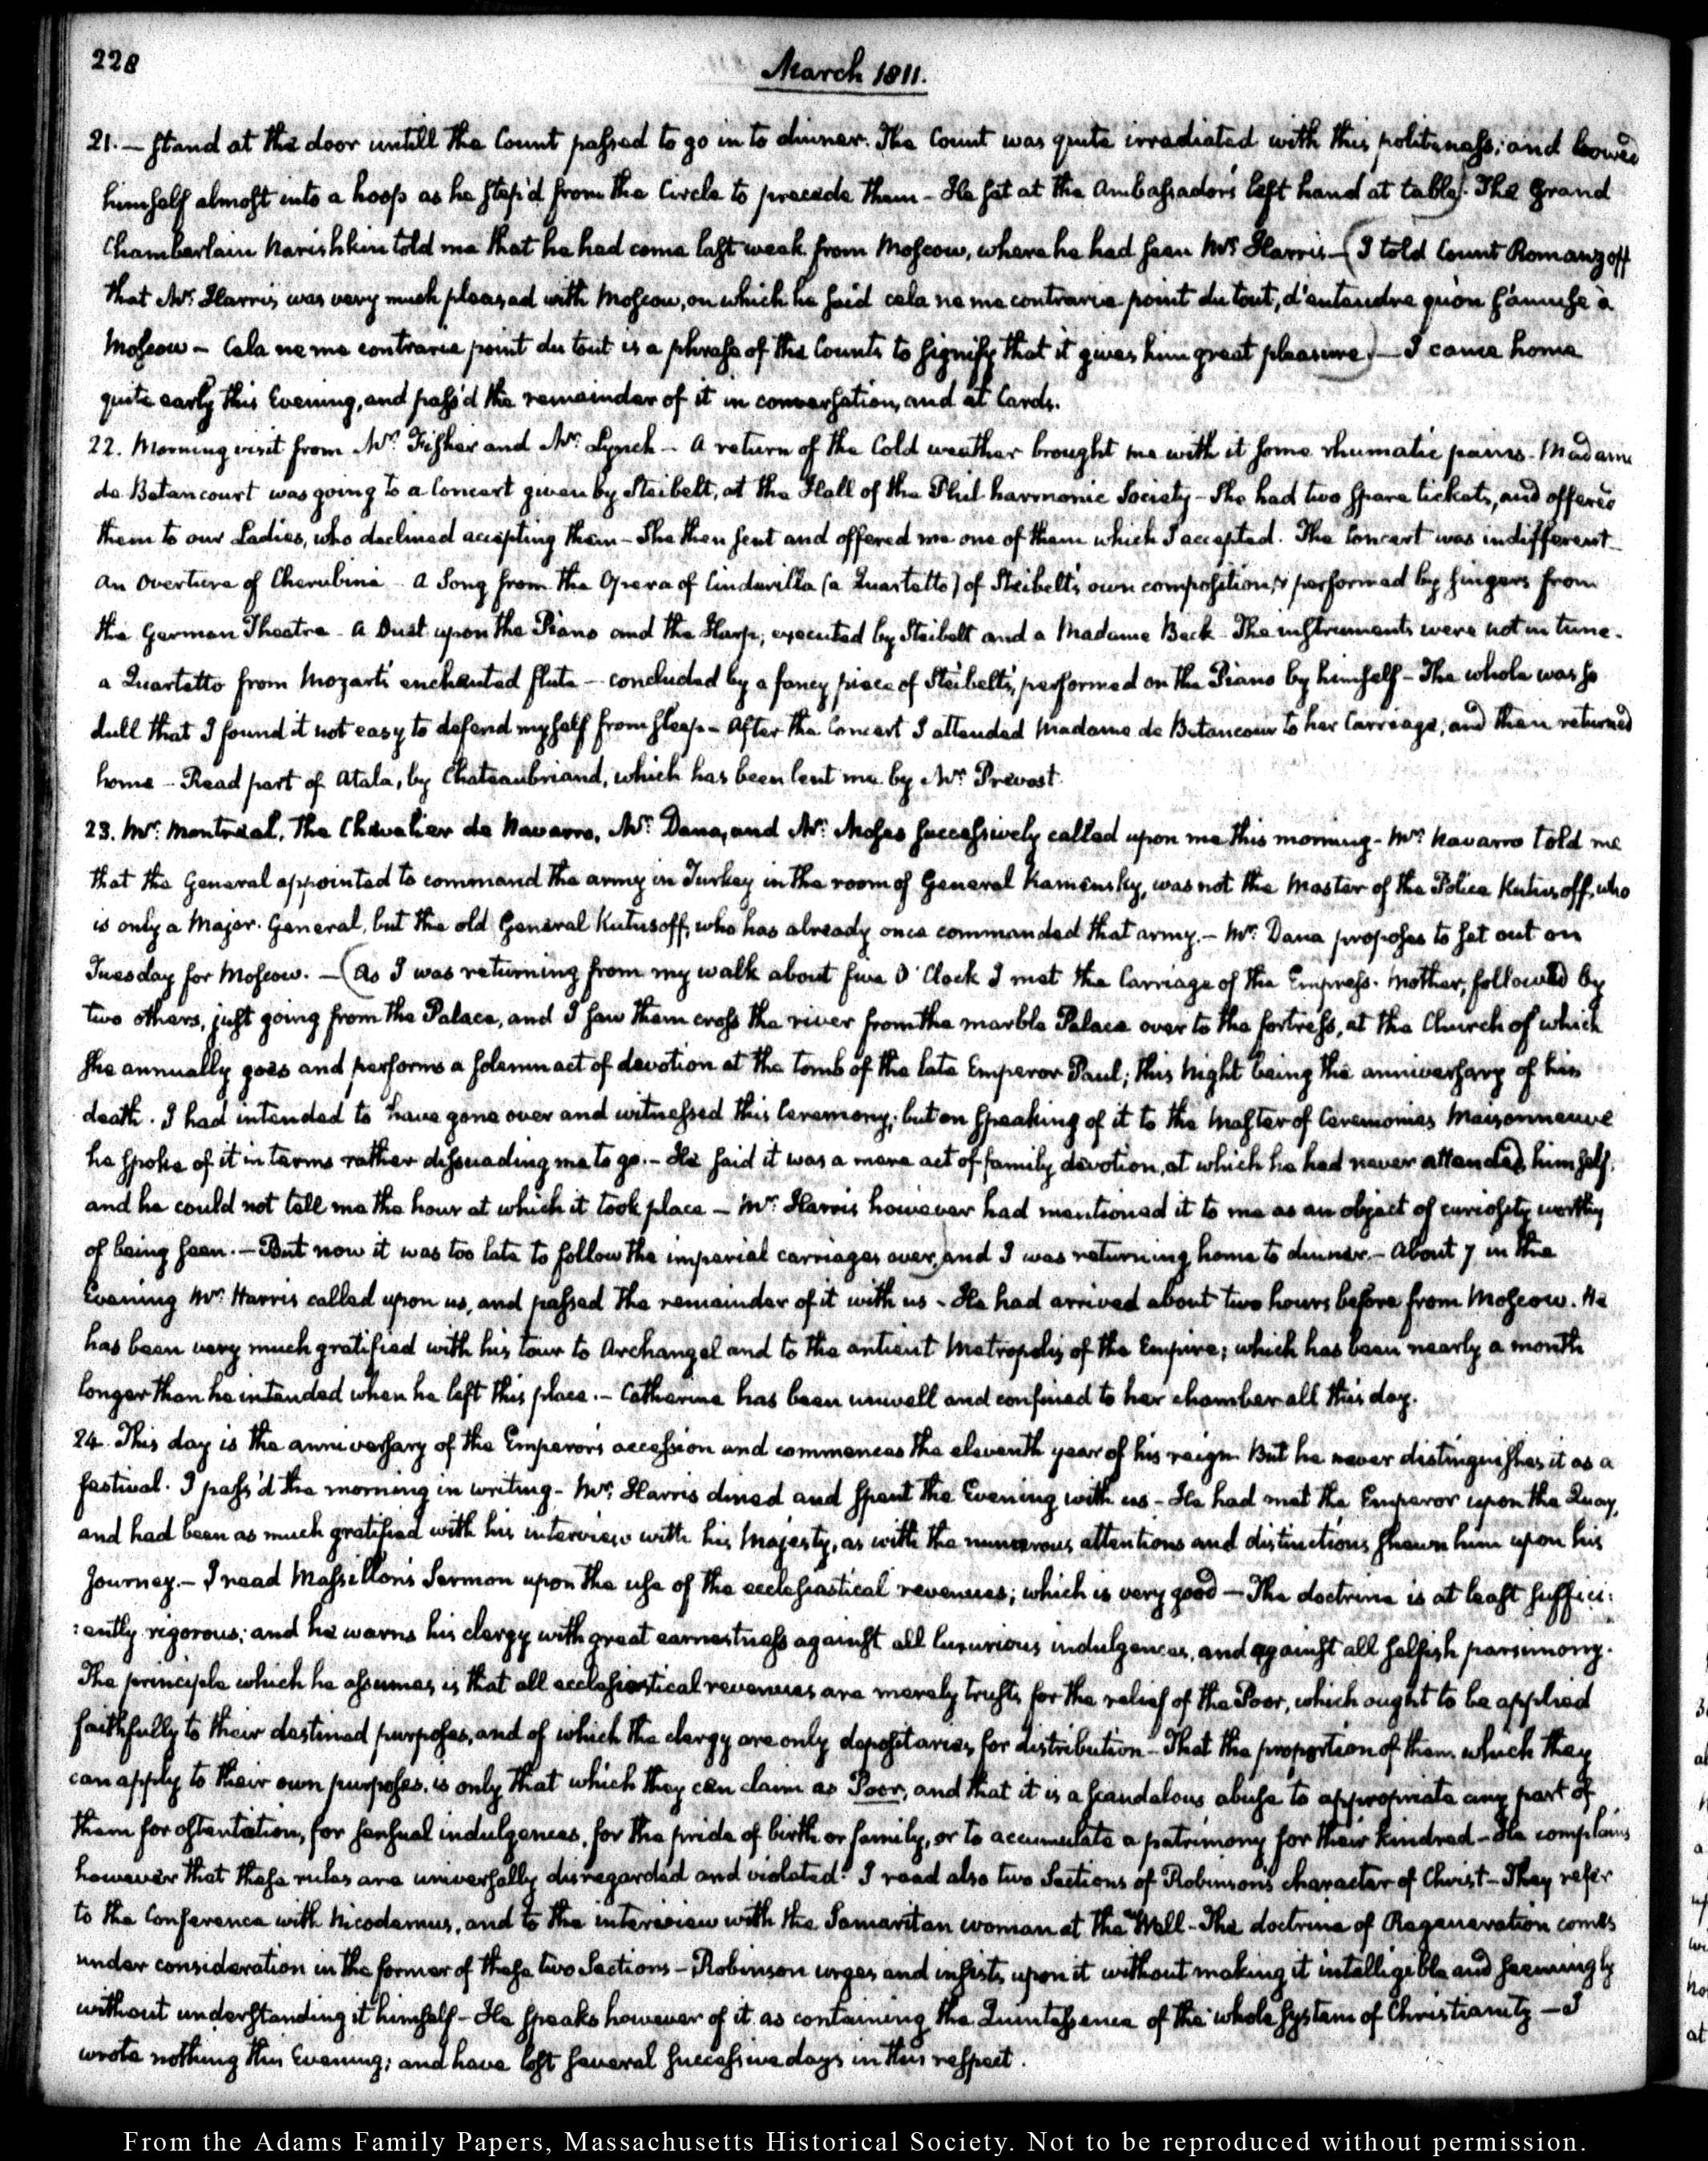 228
March 1811.
21. — stand at the door untill the Count passed to go in to dinner. The Count was quite irradiated with this politeness; and bowed
himself almost into a hoop as he step'd from the Circle to precede them — He sat at the Ambassador's left hand at table). The Grand
Chamberlain Narishkin told me that he had come last week from Moscow, where he had seen Mr. Harris — (I told Count Romanzoff
that Mr. Harris was very much pleased with Moscow, on which he said cela ne me contrarie point du tout, d'entendre qu'on s'amuse à
Moscow — Cela ne me contrarie point du tout is a phrase of the Count's to signify that it gives him great pleasure) — I came home
quite early this Evening, and pass'd the remainder of it in conversation, and at Cards.
22. Morning visit from Mr. Fisher and Mr. Lynch — A return of the Cold weather brought me with it some rhumatic pains. Madame
de Betancourt was going to a Concert given by Steibelt, at the Hall of the Philharmonic Society — She had two spare tickets, and offered
them to our Ladies, who declined accepting them — She then sent and offered me one of them which I accepted. The Concert was indifferent —
an Overture of Cherubini — a Song from the Opera of Cinderilla (a Quartetto) of Steibelt's own composition, & performed by singers from
the German Theatre — a Duet upon the Piano and the Harp, executed by Steibelt and a Madame Beck — The instruments were not in tune.
a Quartetto from Mozart's enchanted flute — concluded by a fancy piece of Steibelt's, performed on the Piano by himself — The whole was so
dull that I found it not easy to defend myself from sleep — After the Concert I attended Madame de Betancour to her Carriage, and then returned
home — Read part of Atala, by Chateaubriand, which has been lent me by Mr. Prevost.
23. Mr. Montréal, The Chevalier de Navarro, Mr. Dana, and Mr. Moses successively called upon me this morning — Mr. Navarro told me
that the General appointed to command the army in Turkey in the room of General Kamensky, was not the Master of the Police Kutusoff, who
is only a Major-General, but the old General Kutusoff, who has already once commanded that army. — Mr. Dana proposes to set out on
Tuesday for Moscow. — (As I was returning from my walk about five O'Clock I met the Carriage of the Empress-Mother, followed by
two others, just going from the Palace, and I saw them cross the river from the marble Palace over to the fortress, at the Church of which
she annually goes and performs a solemn act of devotion at the tomb of the late Emperor Paul; this Night being the anniversary of his
death. I had intended to have gone over and witnessed this Ceremony; but on speaking of it to the Master of Ceremonies Maisonneuve
he spoke of it in terms rather dissuading me to go. — He said it was a mere act of family devotion, at which he had never attended himself,
and he could not tell me the hour at which it took place — Mr. Harris however had mentioned it to me as an object of curiosity worthy
of being seen. — But now it was too late to follow the imperial carriages over,) and I was returning home to dinner. — About 7 in the
Evening Mr. Harris called upon us, and passed the remainder of it with us — He had arrived about two hours before from Moscow. He
has been very much gratified with his tour to Archangel and to the antient Metropolis of the Empire; which has been nearly a month
longer than he intended when he left this place. — Catherine has been unwell and confined to her chamber all this day.
24. This day is the anniversary of the Emperor's accession and commences the eleventh year of his reign. But he never distinguishes it as a
festival. I pass'd the morning in writing — Mr. Harris dined and spent the Evening with us — He had met the Emperor upon the Quay,
and had been as much gratified with his interview with his Majesty, as with the numerous attentions and distinctions shewn him upon his
Journey. — I read Massillon's Sermon upon the use of the ecclesiastical revenues; which is very good — The doctrine is at least suffici:
:ently rigorous; and he warns his clergy with great earnestness against all luxurious indulgences, and against all selfish parsimony.
The principle which he assumes is that all ecclesiastical revenues are merely trusts for the relief of the Poor, which ought to be applied
faithfully to their destined purposes, and of which the clergy are only depositaries for distribution — That the proportion of them which they
can apply to their own purposes, is only that which they can claim as Poor, and that it is a scandalous abuse to appropriate any part of
them for ostentation, for sensual indulgences, for the pride of birth or family, or to accumulate a patrimony for their kindred — He complains
however that these rules are universally disregarded and violated. I read also two Sections of Robinson's character of Christ — They refer
to the Conference with Nicodemus, and to the interview with the Samaritan woman at the Well — The doctrine of Regeneration comes
under consideration in the former of these two Sections — Robinson urges and insists upon it without making it intelligible and seemingly
without understanding it himself — He speaks however of it as containing the Quintessence of the whole system of Christianity — I
wrote nothing this Evening; and have lost several successive days in this respect.
From the Adams Family Papers, Massachusetts Historical Society. Not to be reproduced without permission.